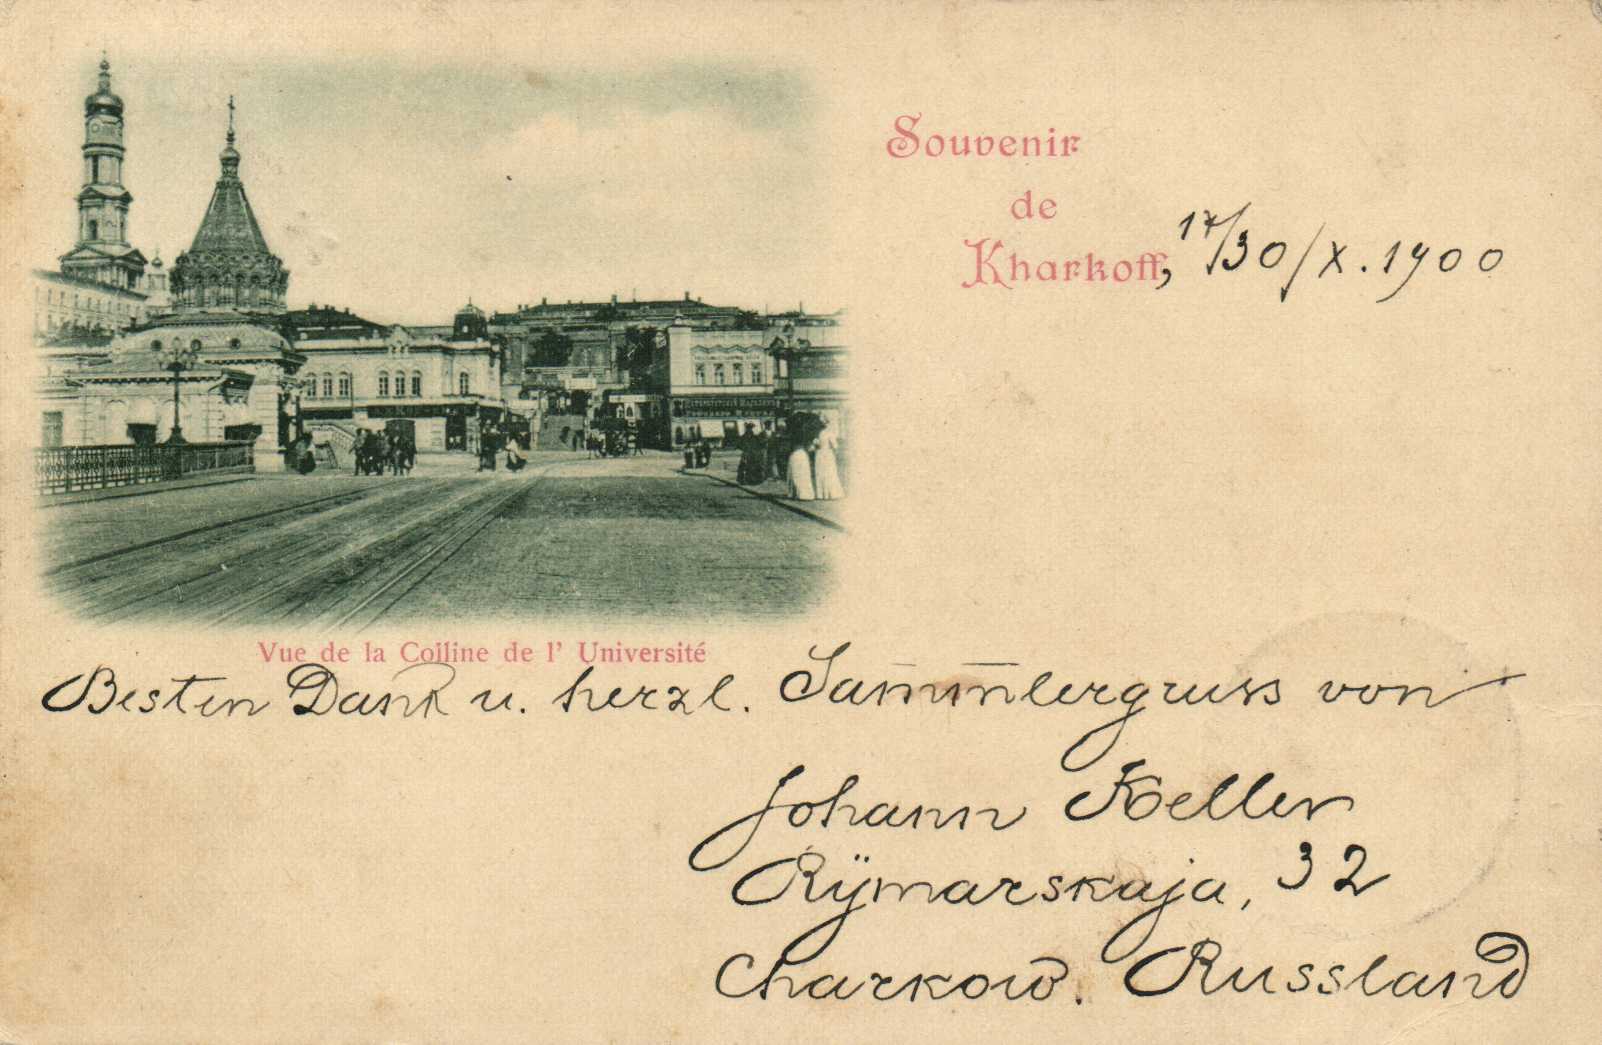 Souvenir
de
Kharkoff, 17/30/X. 1900
Vue de la Colline de l' Université
Besten Dank u. herzl. Sammlergruss von
Johann Keller
Rÿmarskaja, 32
Charkow. Russland